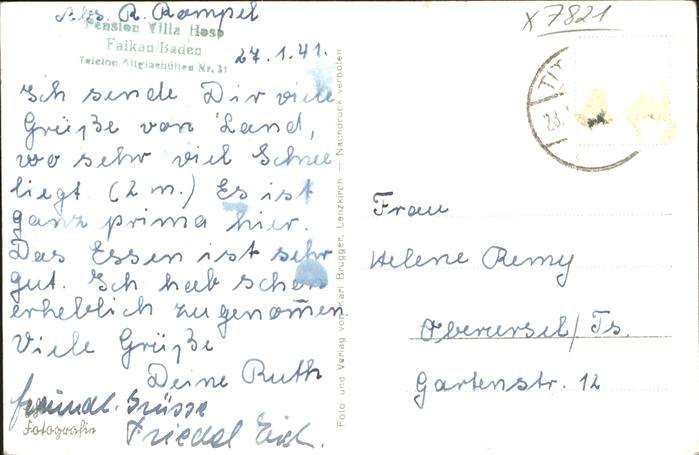 Abs. R. Rompel
Pension Villa Hosp
Falkau/Baden
Telefon Altglashütten Nr. 31
27.1.41.
Ich sende Dir viele
Grüße von Land,
wo sehr viel Schnee
liegt (2 m.) Es ist
ganz prima hier.
Das Essen ist sehr
gut. Ich hab schon
erheblich zugenom̄en
Viele Grüße
Deine Ruth
freundl. Grüsse
Friedel
Fotografie
Foto und Verlag von Karl Brugger, Lenzkirch — Nachdruck verboten
x 7821
TIT
23.
Frau
Helene Remy
Oberursel/Ts.
Gartenstr. 12